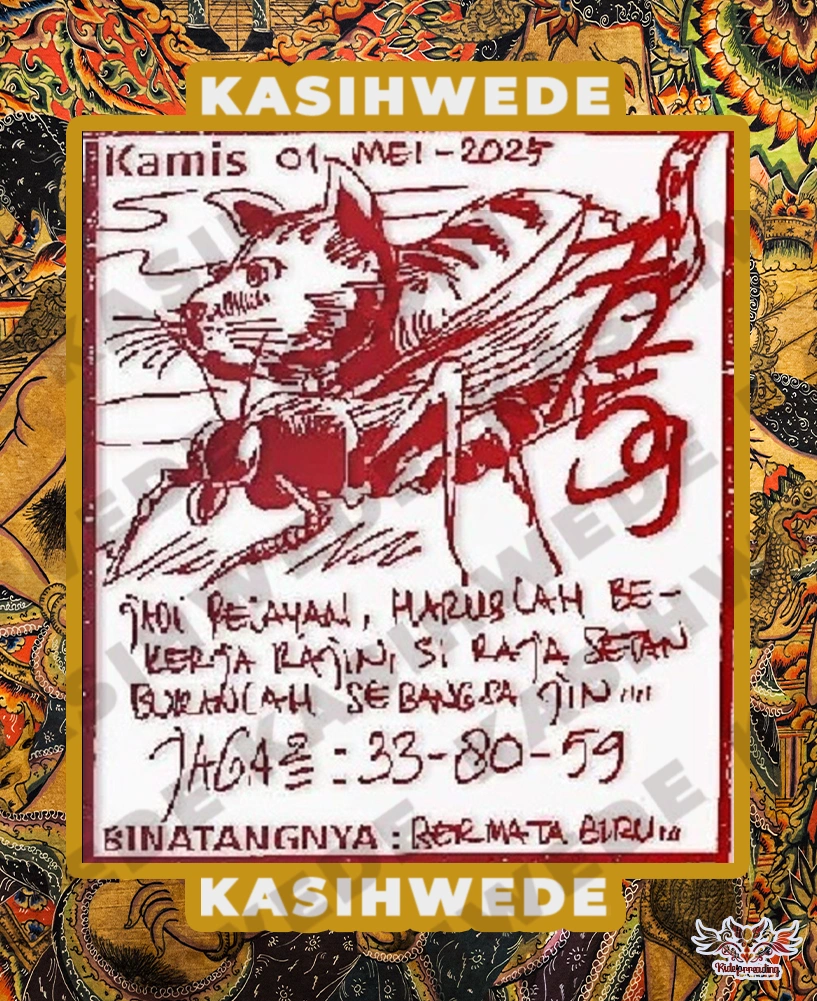 KASIHWEDE
Kamis 01 - MEI - 2025
JADI PELAYAN, HARUSLAH BE-
KERJA RAJIN, SI RAJA SETAN
BUKANLAH SEBANGSA JIN...
JAGA2 = : 33-80-59
BINATANGNYA : BERMATA BIRU...
KASIHWEDE